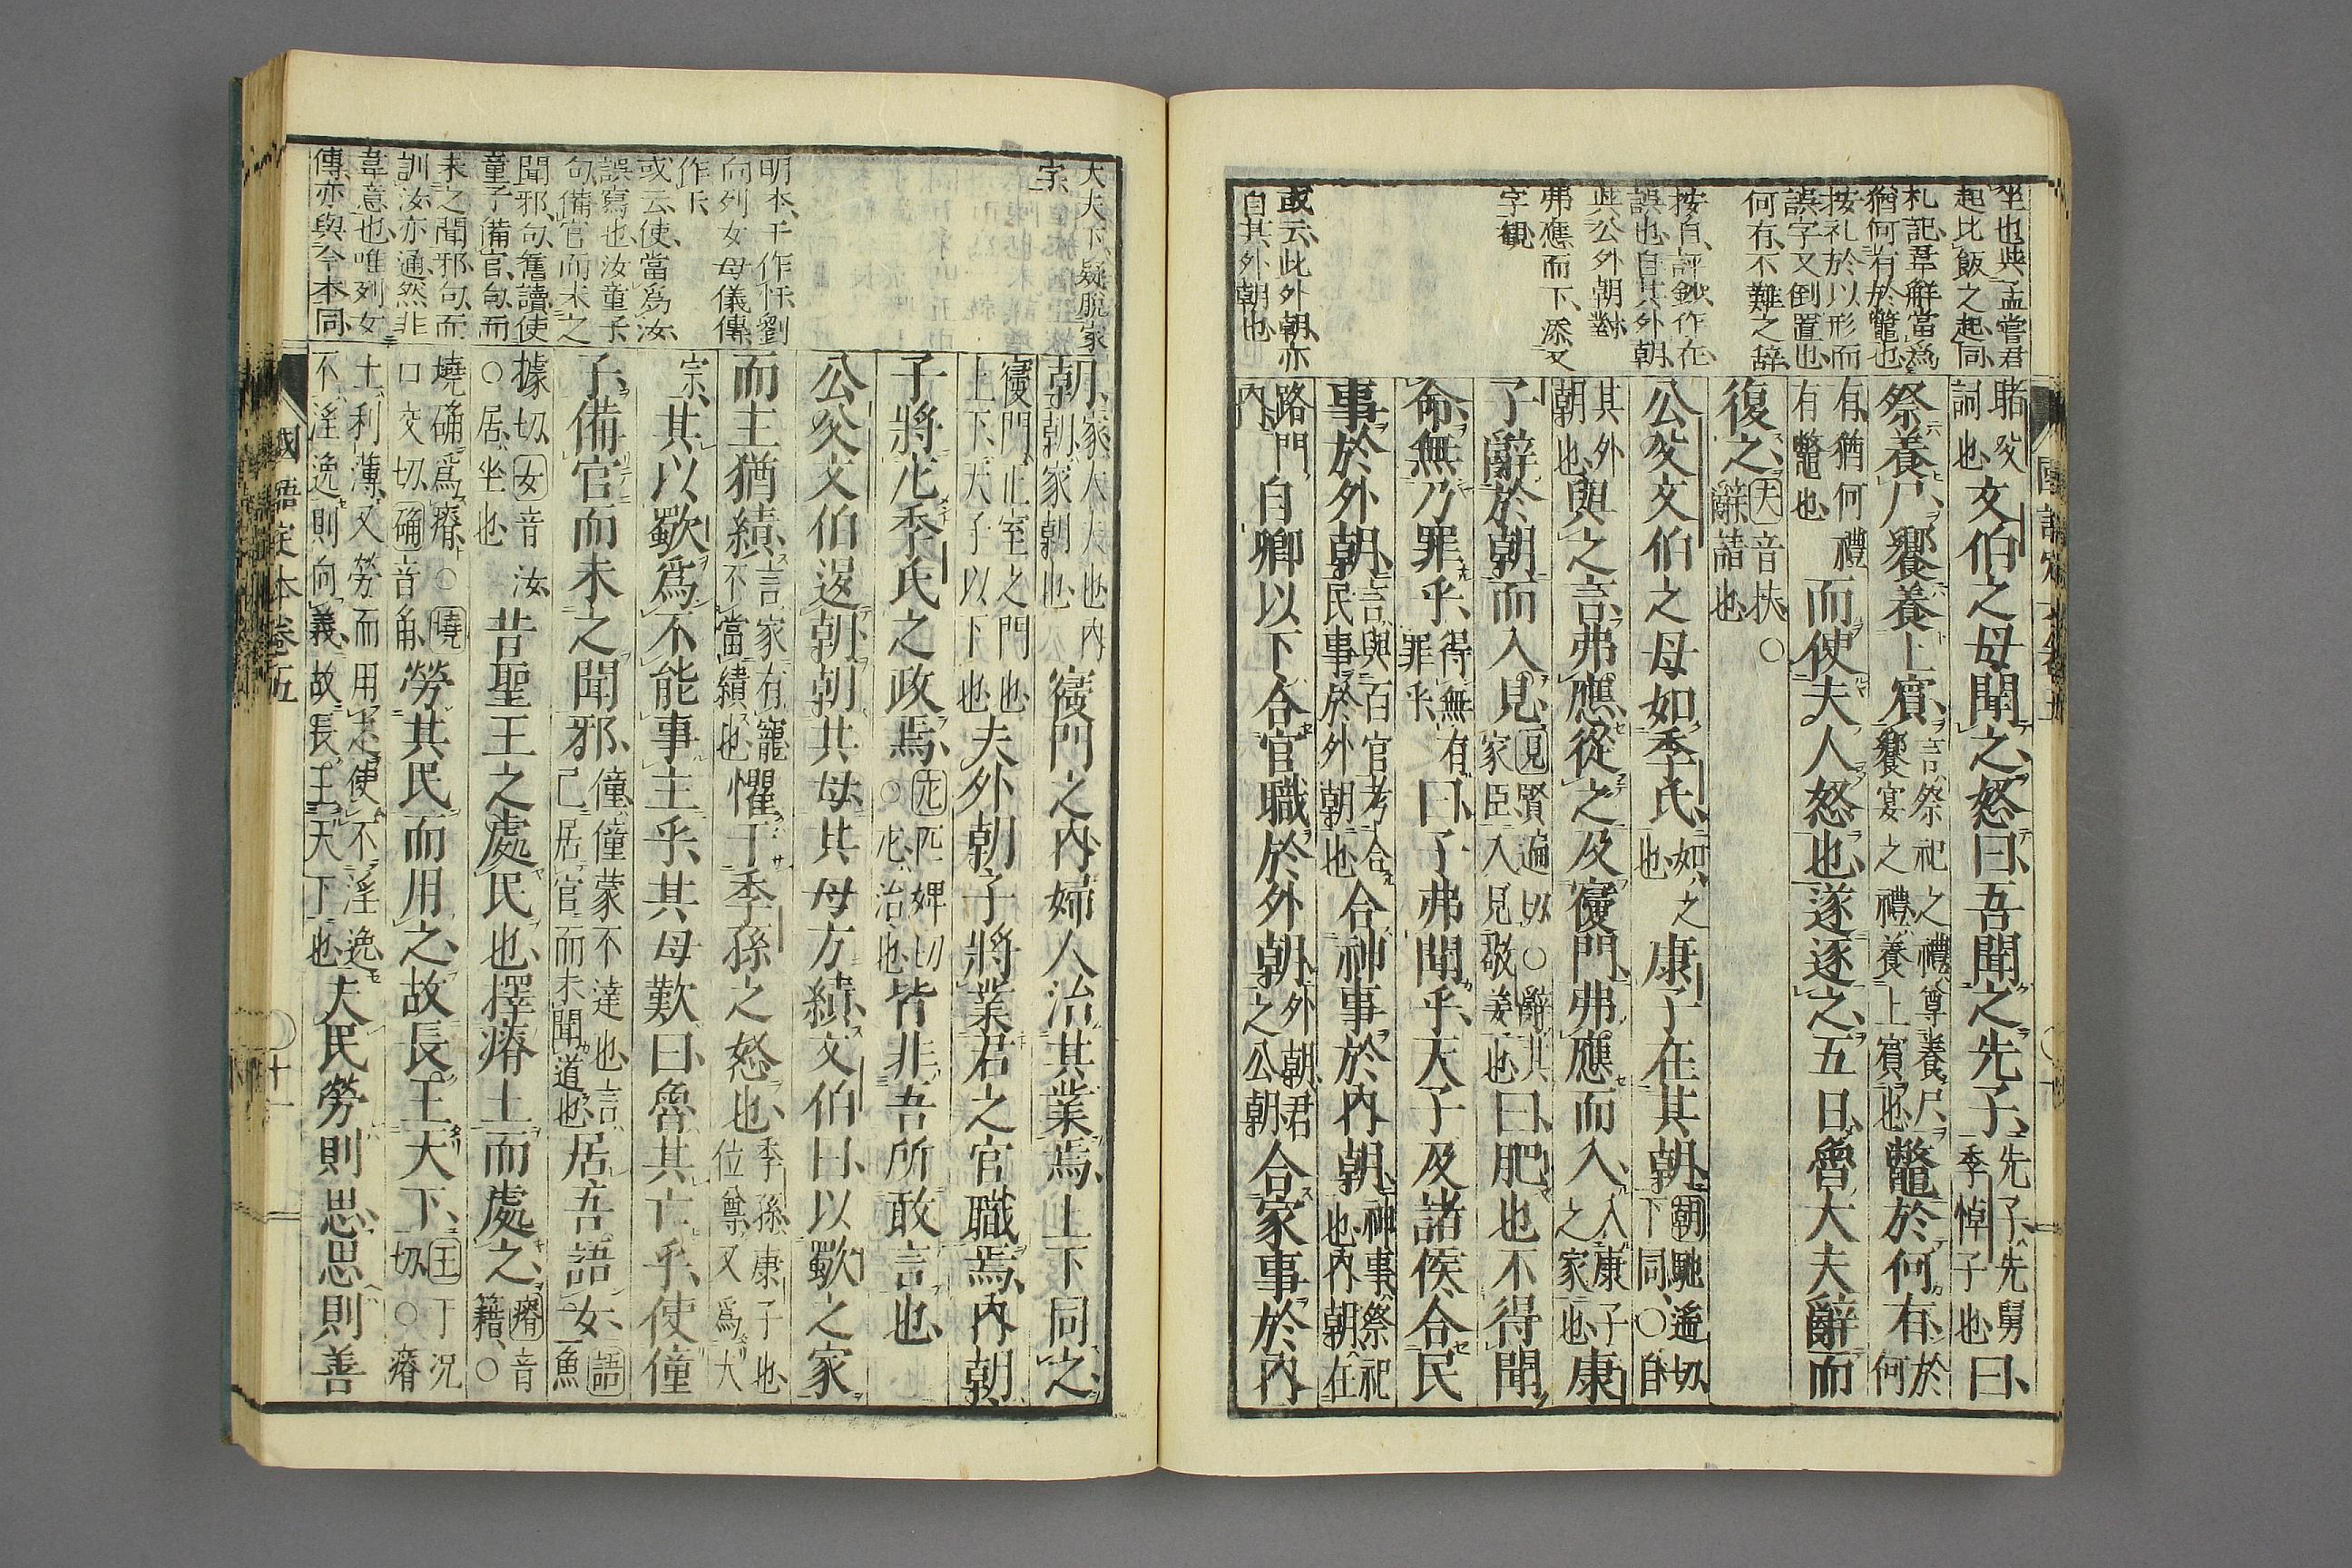 坐也與孟嘗君
起比飯之起同
札記吾觧當爲
猶何有於鼈也
按札於以形而
誤字又倒置也
何有不難之辞
按自評鈔作在
誤也自其外朝
與公外朝對
弗應而下添又
字観
或云此外朝亦
自其外朝也
賭父詞也文伯之母聞之怒曰吾聞之先子先子先舅季悼子也曰
祭養尸饗養上賓言祭祀之禮尊養尸饗宴之禮養上賓也鼈於何有於何
有猶何禮有鼈也而使夫人怒也遂逐之五日魯大夫辭而
復之夫音扶○辭請也
公父文伯之母如季氏如之也康子在其朝朝馳遙切下同○自
其外朝也與之言弗應從之及寢門弗應而入入康子之家也康
子辭於朝而入見見賢遍切○辭其家臣入見敬姜也曰肥也不得聞
命無乃罪乎得無有罪乎曰子弗聞乎天子及諸侯合民
事於外朝言與百官考合民事於外朝也合神事於內朝神事祭祀也內朝在
路門內自卿以下合官職於外朝外朝君之公朝合家事於內
國語定本卷五
大夫下疑脫家
字
明本干作忓劉
向列女母儀傳
作忓
或云使當爲汝
誤寫也汝童子
句備官而未之
聞邪句舊讀使
童子備官句而
未之聞邪句而
訓汝亦通然非
韋意也唯列女
傳亦與今本同
朝家大夫也內朝家朝也寢門之內婦人治其業焉上下同之
寢門正室之門也上下天子以下也夫外朝子將業君之官職焉內朝
子將庀季氏之政焉庀匹婢切○庀治也皆非吾所敢言也
公父文伯退朝朝其母其母方績文伯曰以歜之家
而主猶績言家有寵不當績也懼干季孫之怒也季孫康子也位尊又爲大
宗其以歜爲不能事主乎其母歎曰魯其亡乎使僮
子備官而未之聞邪僮僮蒙不達也言己居官而未聞道也居吾語女語魚
據切女音汝○居坐也昔聖王之處民也擇瘠土而處之瘠音籍○
墝确爲瘠○墝口交切确音角勞其民而用之故長王天下王于況切○瘠
土利薄又勞而用之使不淫逸不淫逸則向義故長王天下也夫民勞則思思則善
國語定本卷五
十一